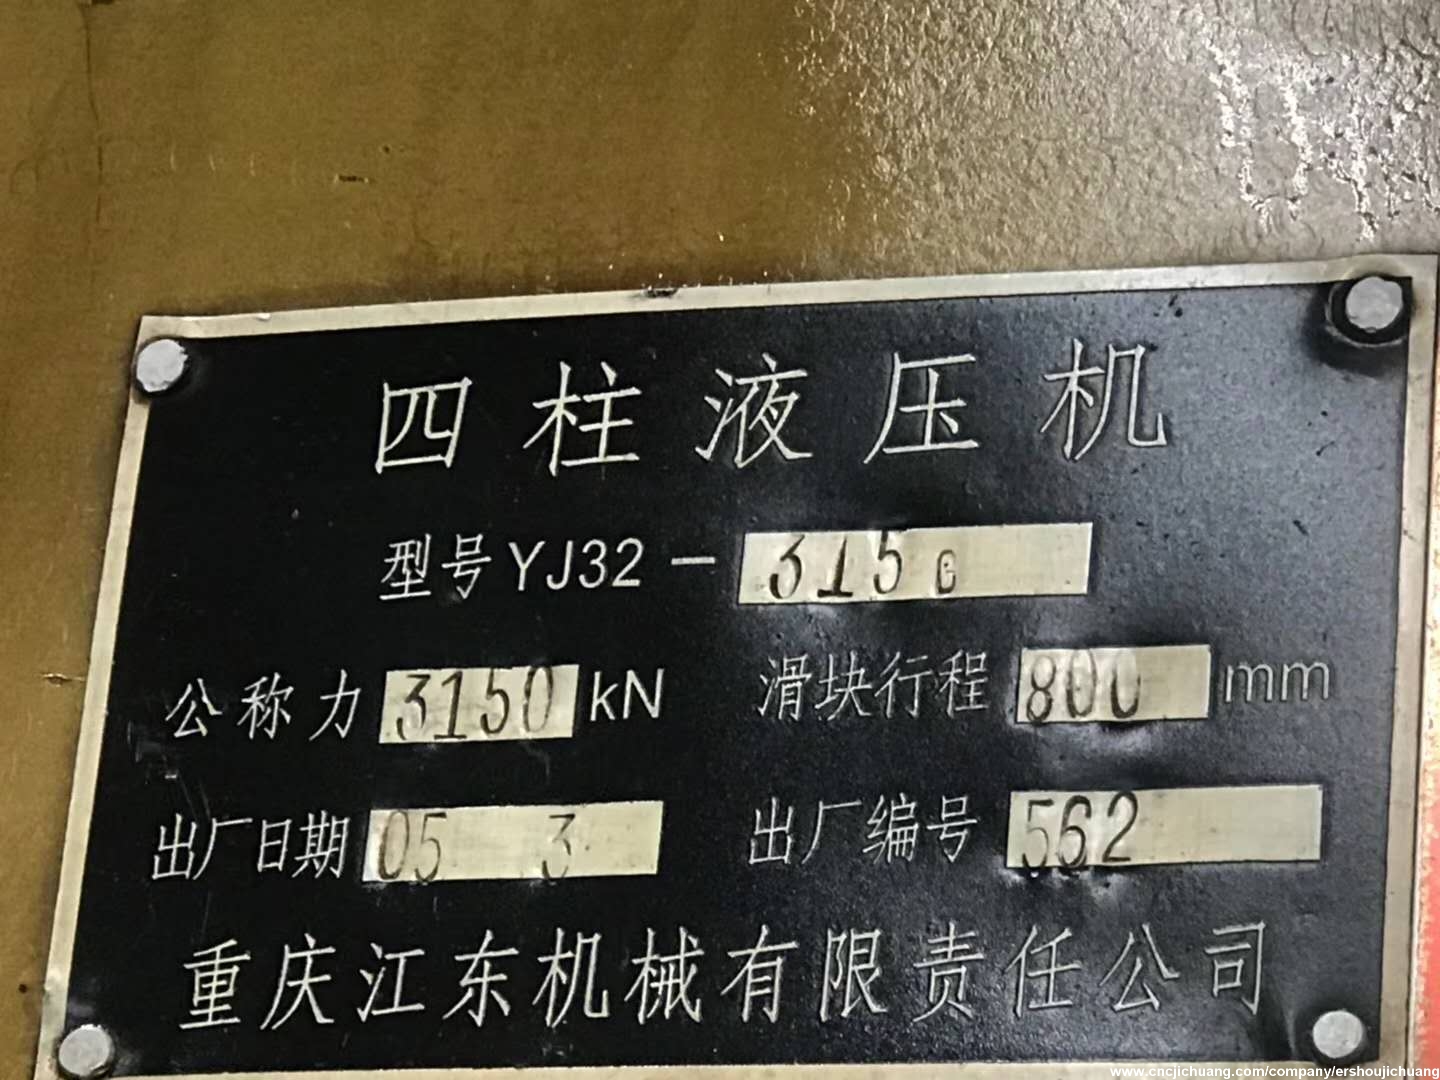 四柱液压机
型号 YJ32-315G
公称力 3150 kN 滑块行程 800 mm
出厂日期 05 3 出厂编号 562
重庆江东机械有限责任公司
www.cncjichuang.com/company/ershoujichuang